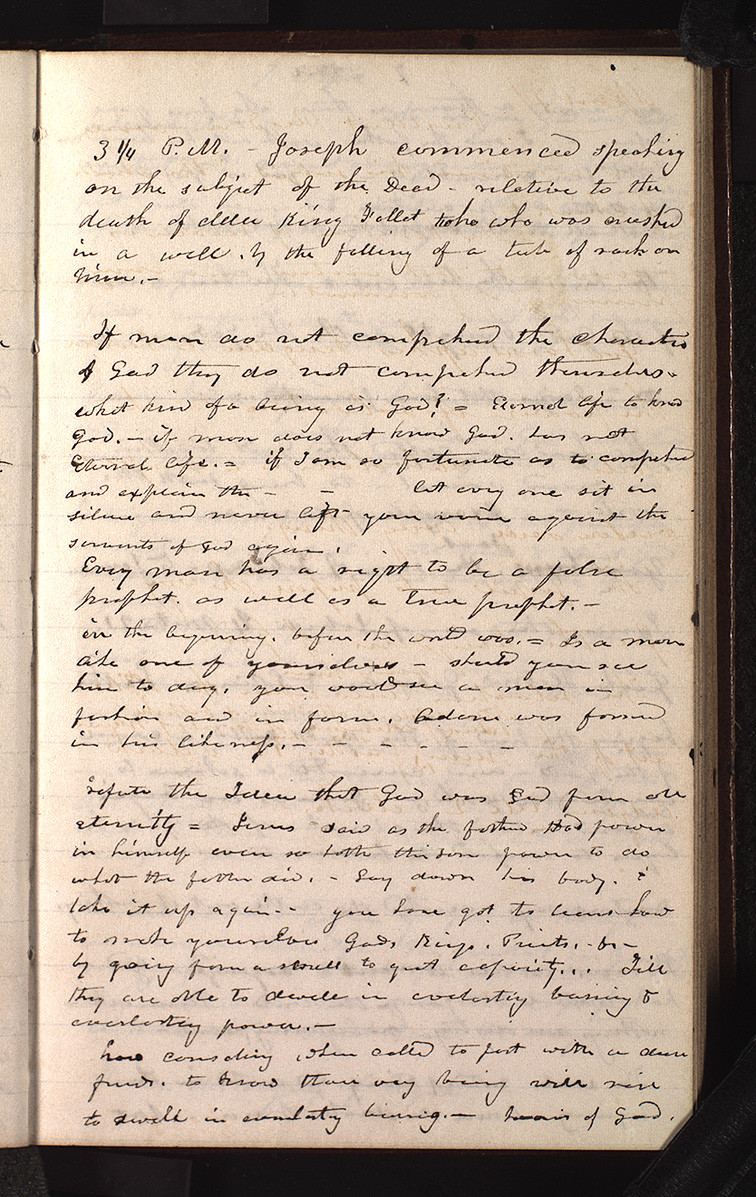 3 1/4 P.M. - Joseph commenced speaking
on the subject of the Dead - relative to the
death of Elder King Follet who was crushed
in a well. by the falling of a tub of rock on
him. -
If men do not comprehend the character
of God they do not comprehend themselves.
what kind of a being is God? = Eternal life to know
God. - if man does not know God. has not
Eternal life. = if I am so fortunate as to comprehend
and explain the - - let every one sit in
silence and never lift your voice against the
servants of God again.
Every man has a right to be a false
prophet. as well as a true prophet. -
in the beginning. before the world was. = Is a man
like one of yourselves - should you see
him to day. you would see a man in
fashion and in form. Adam was formed
in his likeness. - - - - - -
refute the Idea that God was God from all
eternity = Jesus said as the father had power
in himself even so hath the son power to do
what the father did. - Lay down his body. &
take it up again - you have got to learn how
to make yourselves Gods Kings. Priests. &c -
by going from a small to great capacity. . . Till
they are able to dwell in everlasting burning &
everlasting power. -
how consoling when called to part with a dear
friend. to know their very being will rise
to dwell in everlasting burning. - heirs of God.